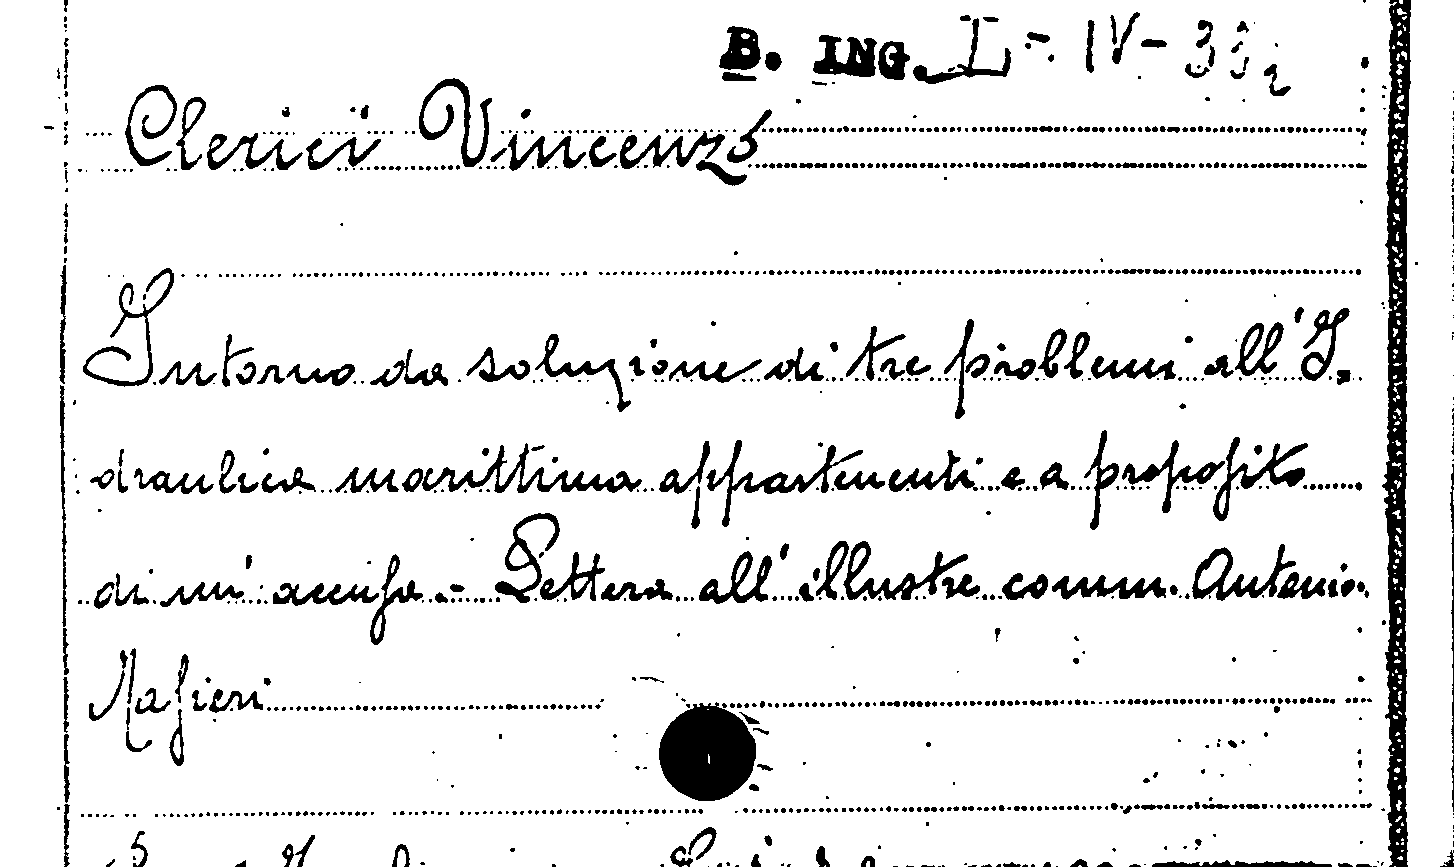 B. ING. I - IV - 33₂
Clerici Vincenzo
Intorno da soluzione di tre problemi all'I-
draulica marittima appartenenti e a proposito
di un' accusa.- Lettera all'illustre comm. Antonio